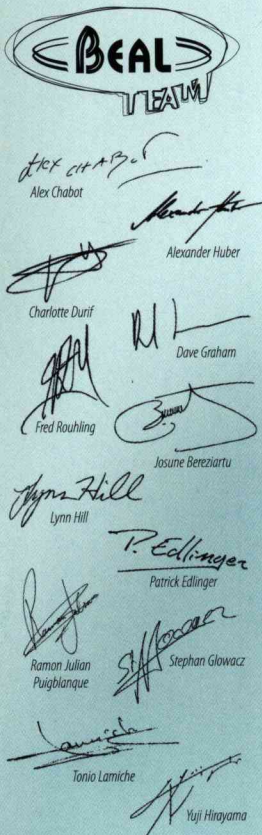 BEAL
TEAM
ALEX CHABOT
Alex Chabot
Alexander Huber
Alexander Huber
Charlotte Durif
Dave Graham
Fred Rouhling
Josune Bereziartu
Lynn Hill
Lynn Hill
P. Edlinger
Patrick Edlinger
Ramon Julian
Puigblanque
St Glowacz
Stephan Glowacz
Lamiche
Tonio Lamiche
Yuji Hirayama